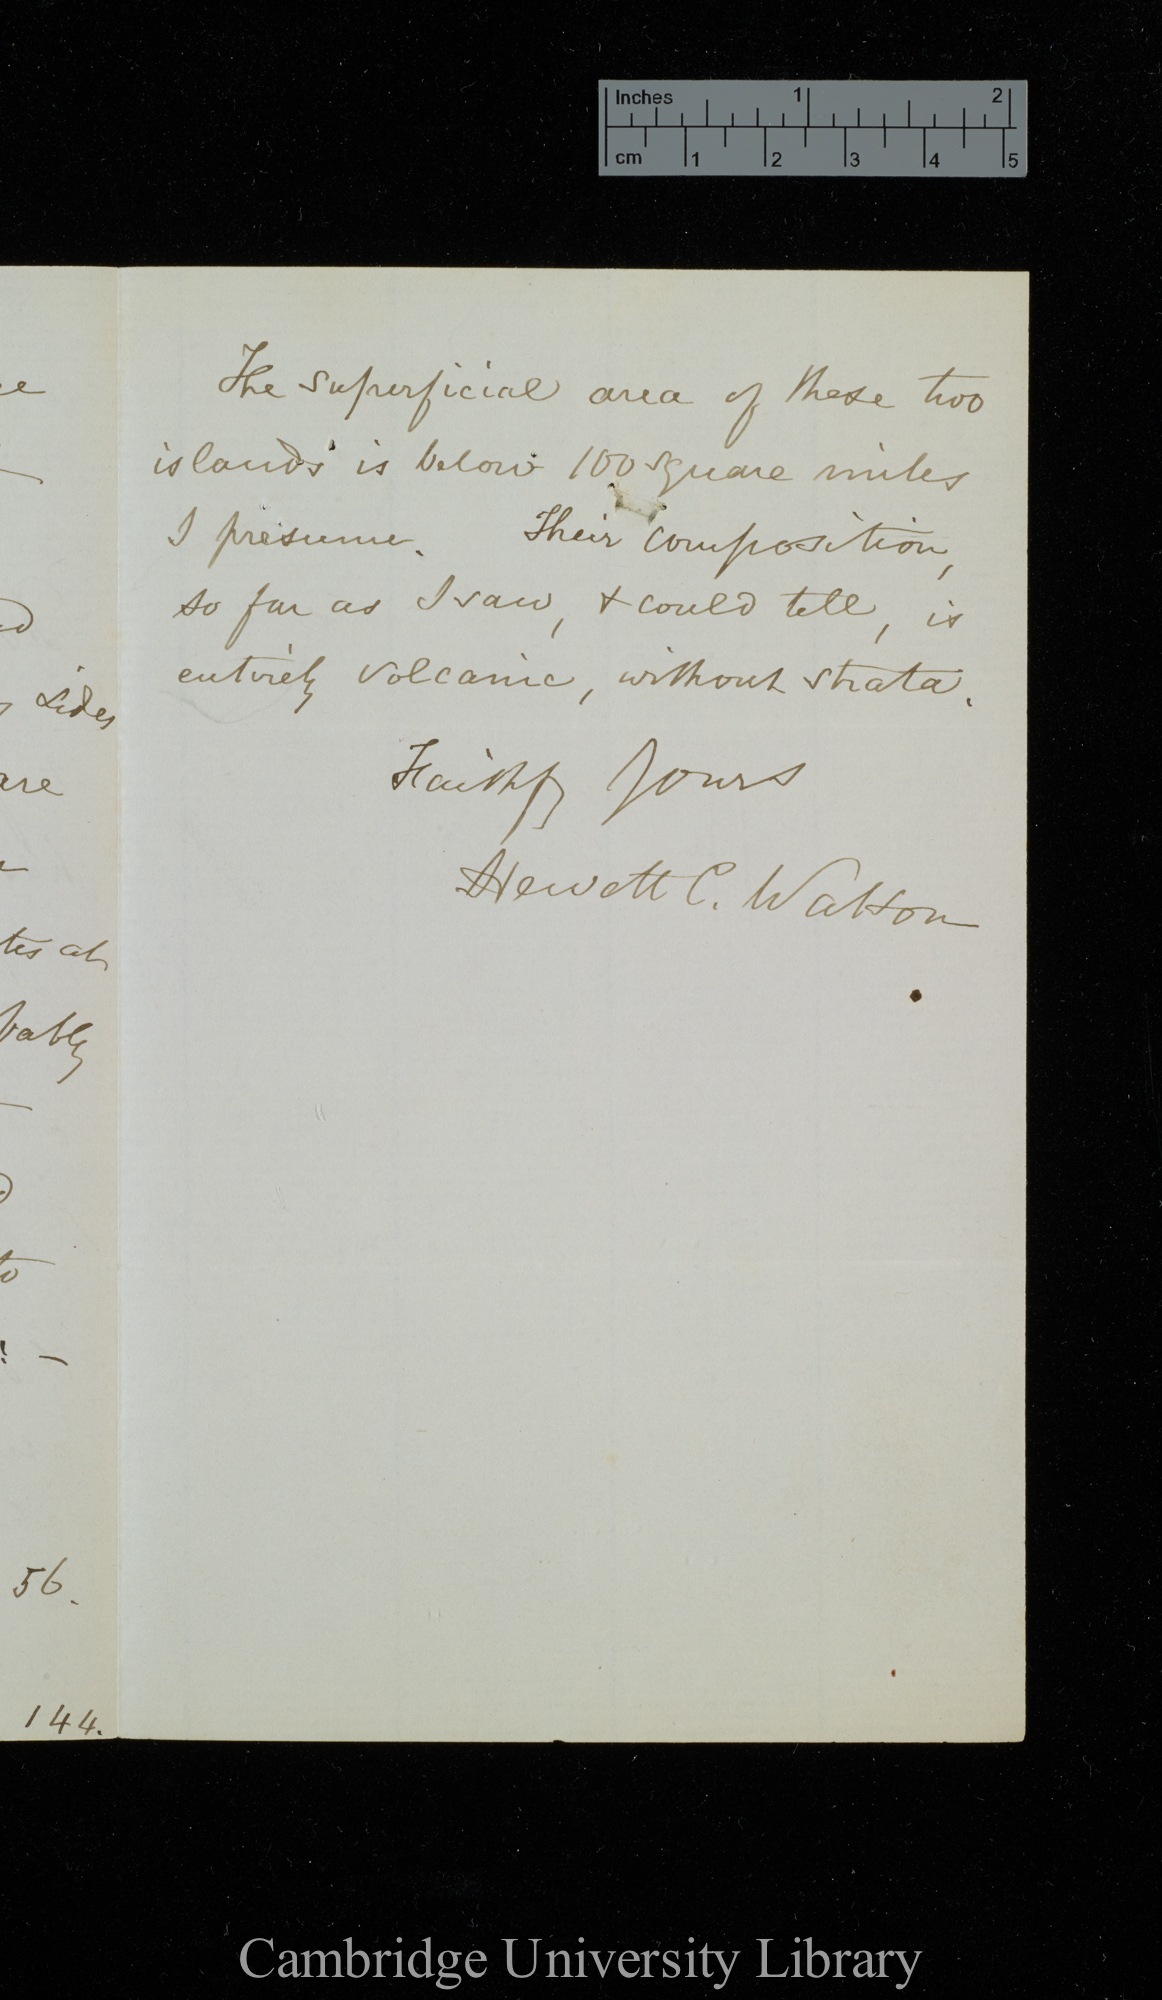 Inches 1 2
cm 1 2 3 4 5
The superficial area of these two
islands is below 100 square miles
I presume. Their composition,
so far as I saw, & could tell, is
entirely volcanic, without strata.
Faithfy Yours
Hewett C. Watson
sides
are
at
to
! —
56.
144.
Cambridge University Library